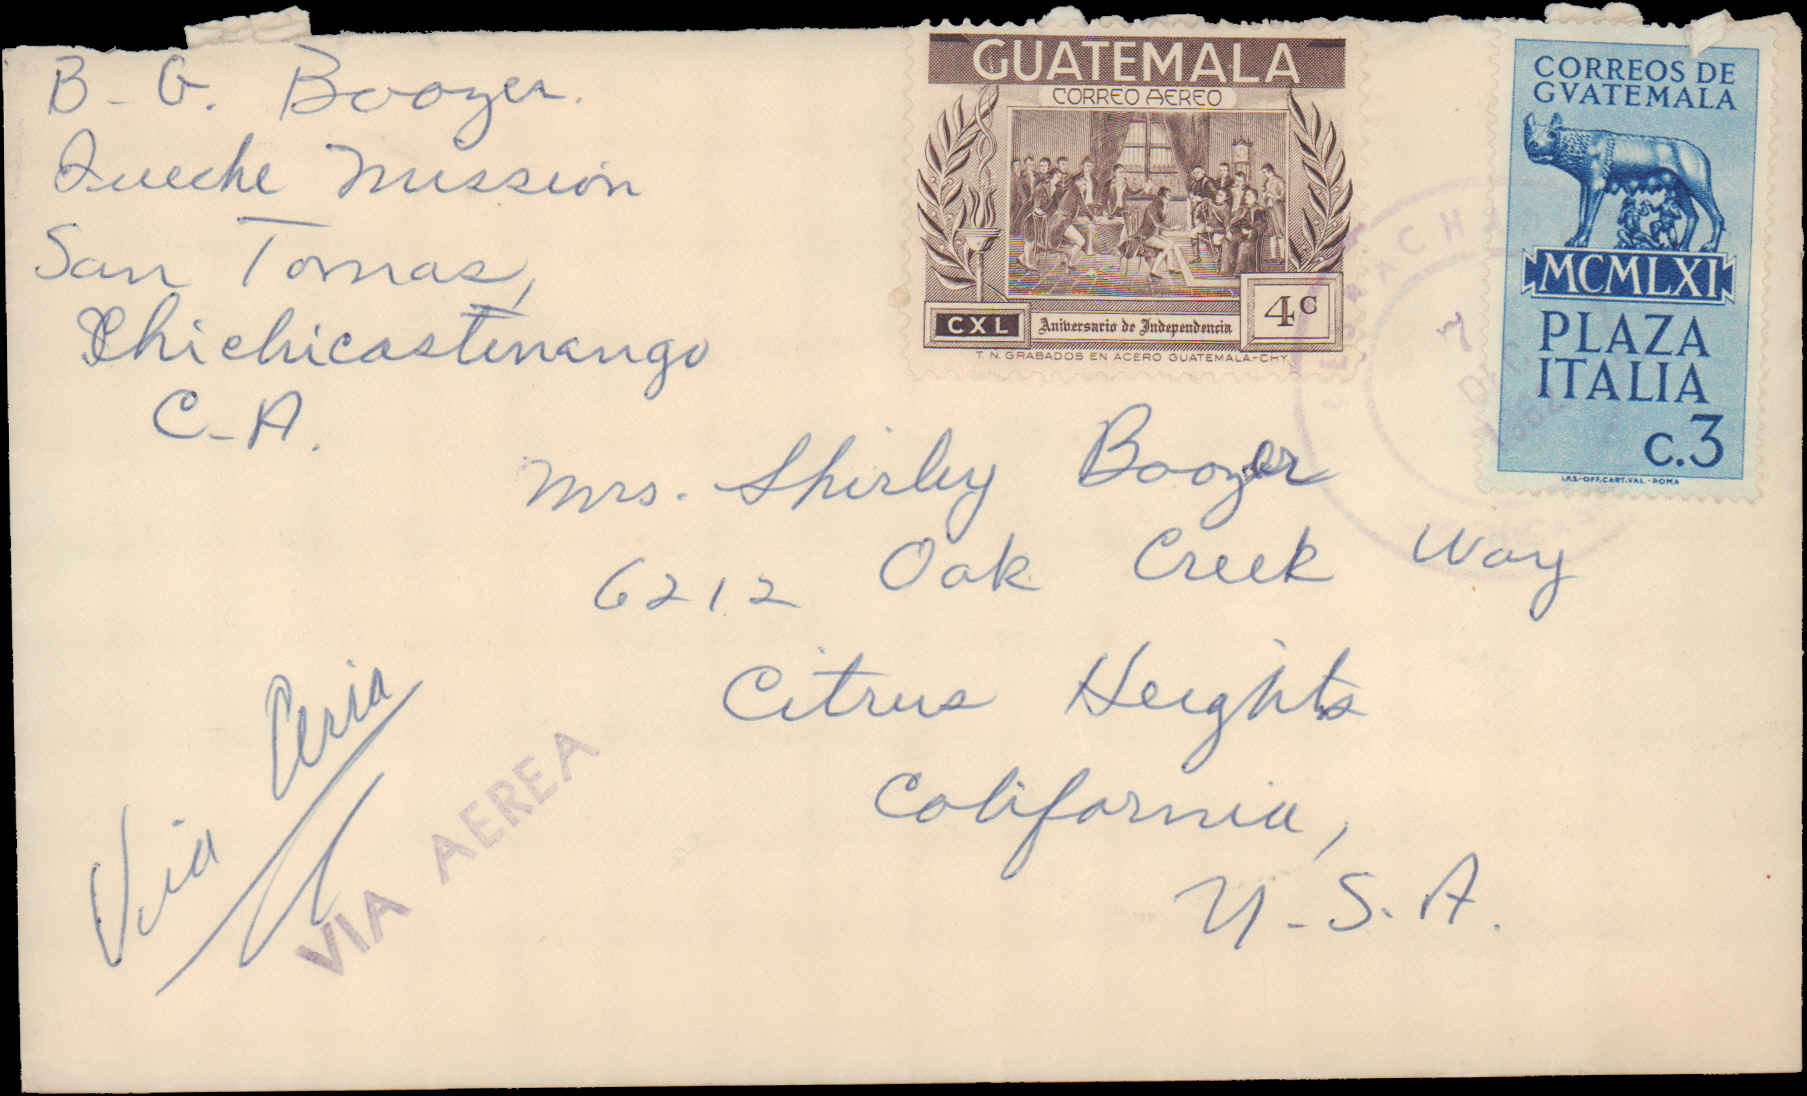 B-G. Boozer.
Queche Mission
San Tomas,
Chichicastenango
C-A.
GUATEMALA
CORREO AEREO
CXL
Aniversario de Independencia
4c
T. N. GRABADOS EN ACERO GUATEMALA-CHY
CORREOS DE
GVATEMALA
MCMLXI
PLAZA
ITALIA
c.3
I.P.S.-OFF.CART.VAL.-ROMA
Mrs. Shirley Boozer
6212 Oak Creek Way
Citrus Heights
California,
U-S.A.
Via Aeria
VIA AEREA